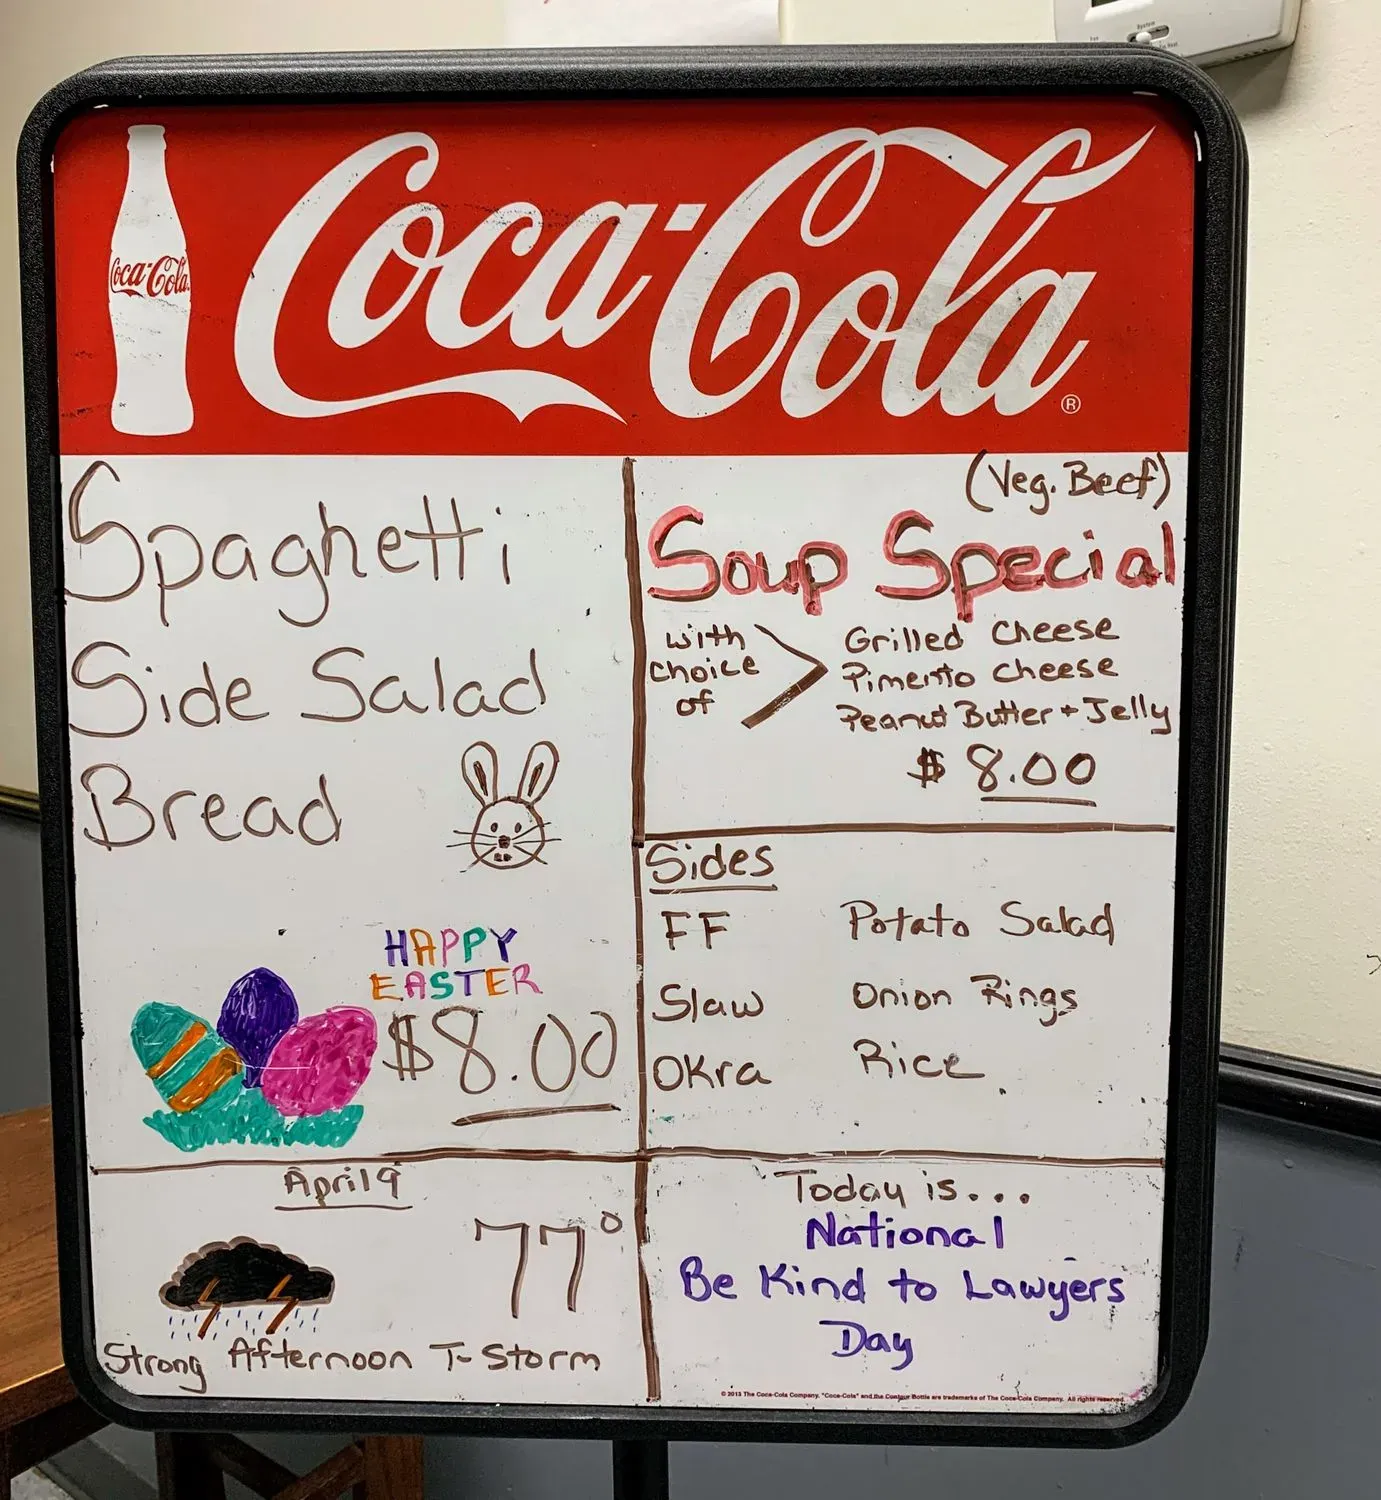 Coca-Cola
Coca-Cola®
Spaghetti
Side Salad
Bread
HAPPY
EASTER
$8.00
(Veg. Beef)
Soup Special
with
choice
of
Grilled Cheese
Pimento Cheese
Peanut Butter + Jelly
$8.00
Sides
FF
Slaw
OKra
Potato Salad
Onion Rings
Rice
April 9
77°
Strong Afternoon T-Storm
Today is...
National
Be Kind to Lawyers
Day
© 2013 The Coca-Cola Company. "Coca-Cola" and the Contour Bottle are trademarks of The Coca-Cola Company. All rights reserved.
System